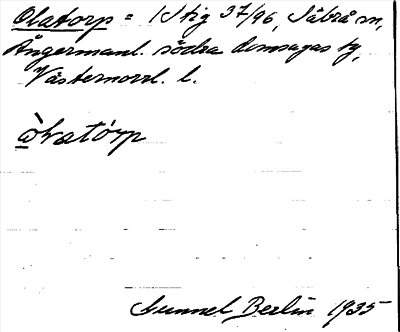 Olatorp = 1 Stig 37/96, Säbrå sn,
Ångermanl. södra domsagas tg,
Västernorrl. l.
òḷatórp
Gunnel Berlin 1935